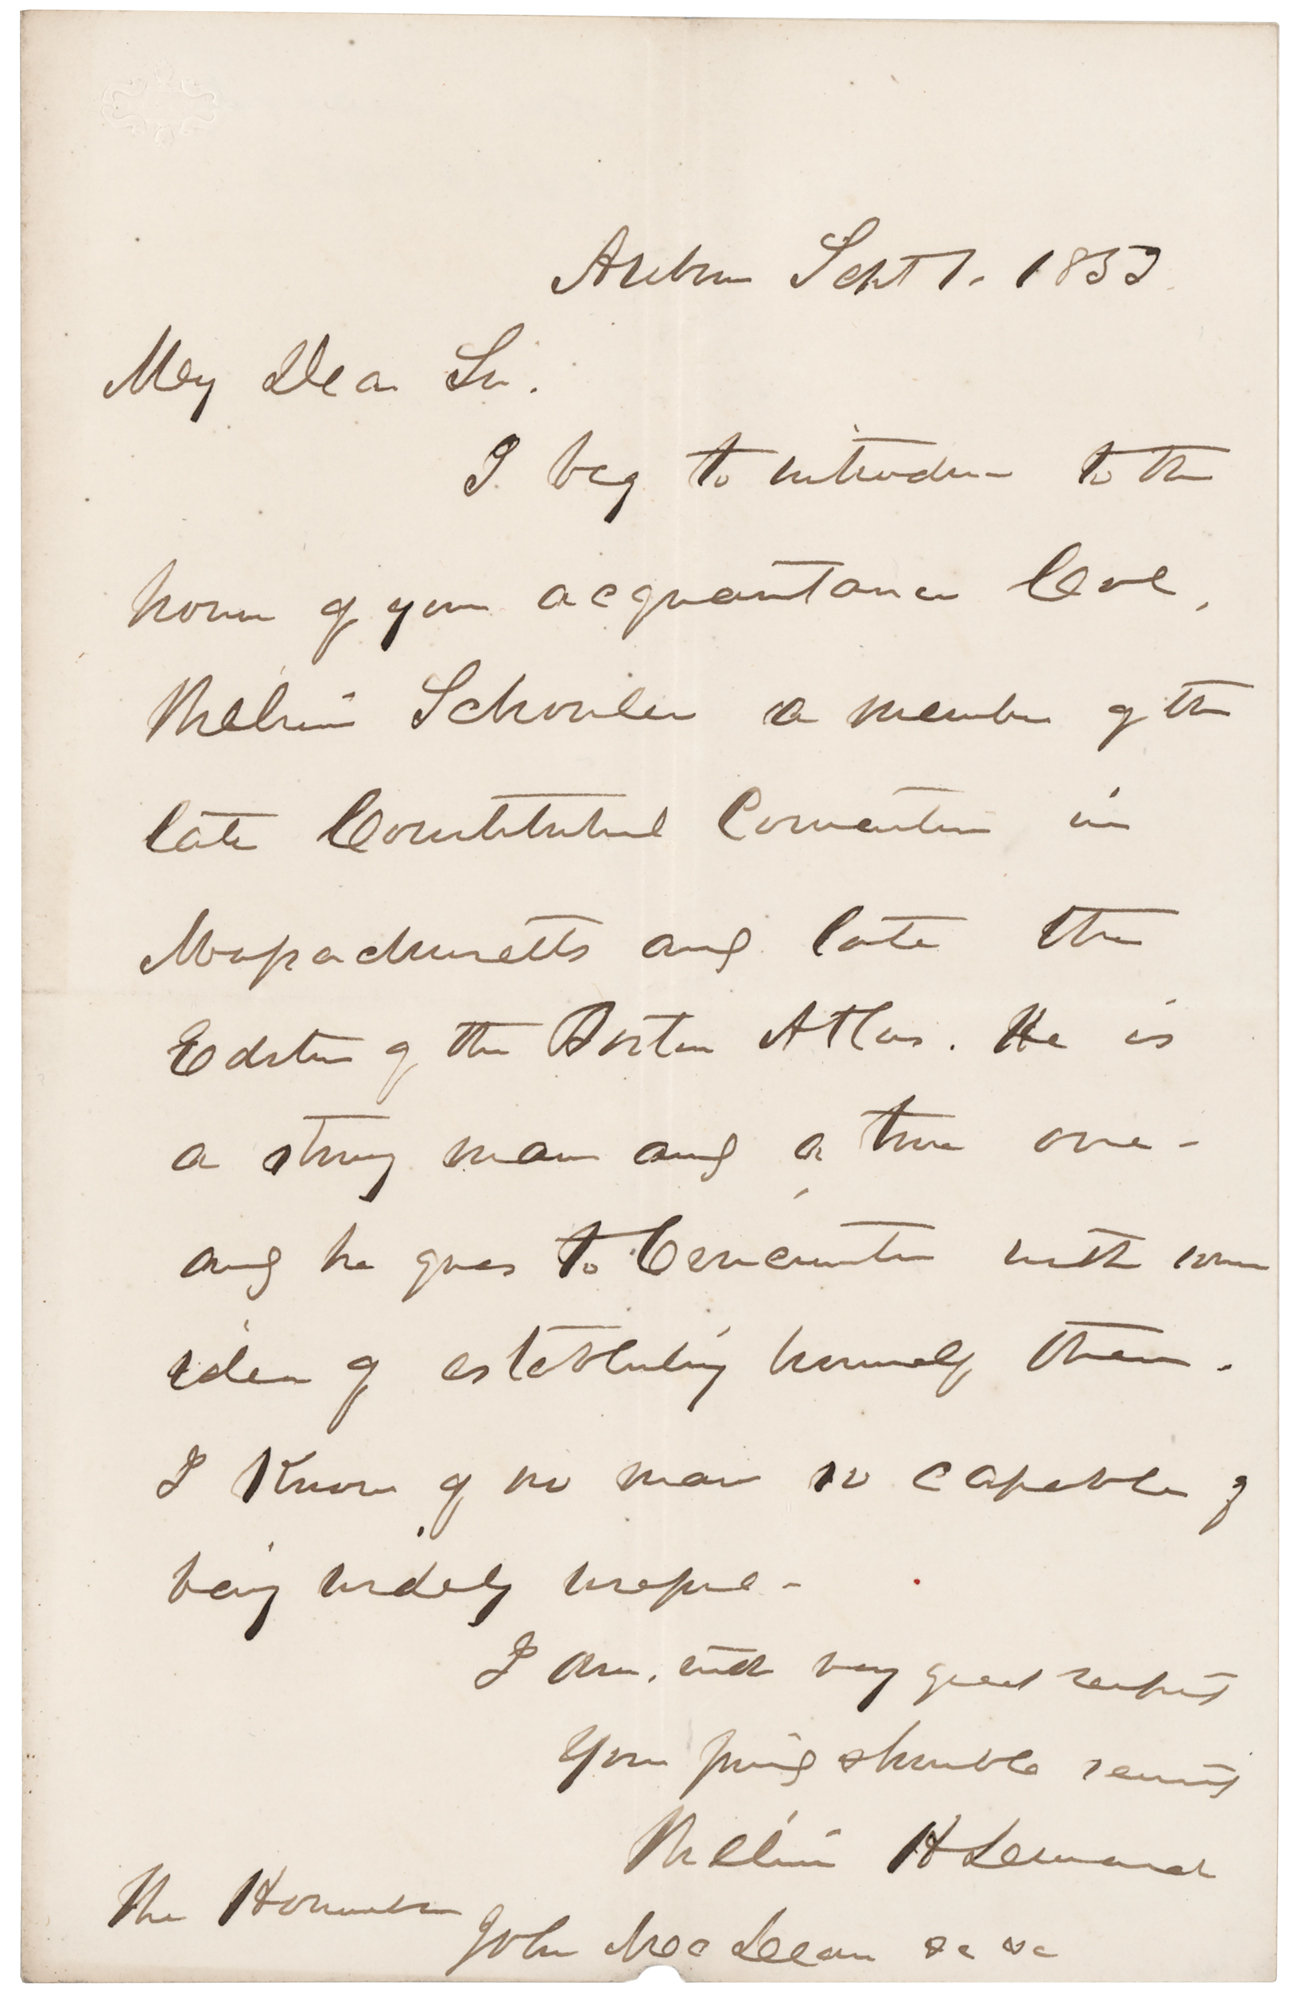 Auburn Sept 1. 1853
My Dear Sir.
I beg to introduce to the
honor of your acquaintance Col.
William Schouler a member of the
late Constitutional Convention in
Massachusetts and late the
Editor of the Boston Atlas. He is
a strong man and a true one -
and he goes to Cincinnati with some
idea of establishing himself there.
I know of no man so capable of
being widely useful -
I am, with very great respect
Your friend & humble servant
William H Seward
The Honorable
John MacLean &c &c